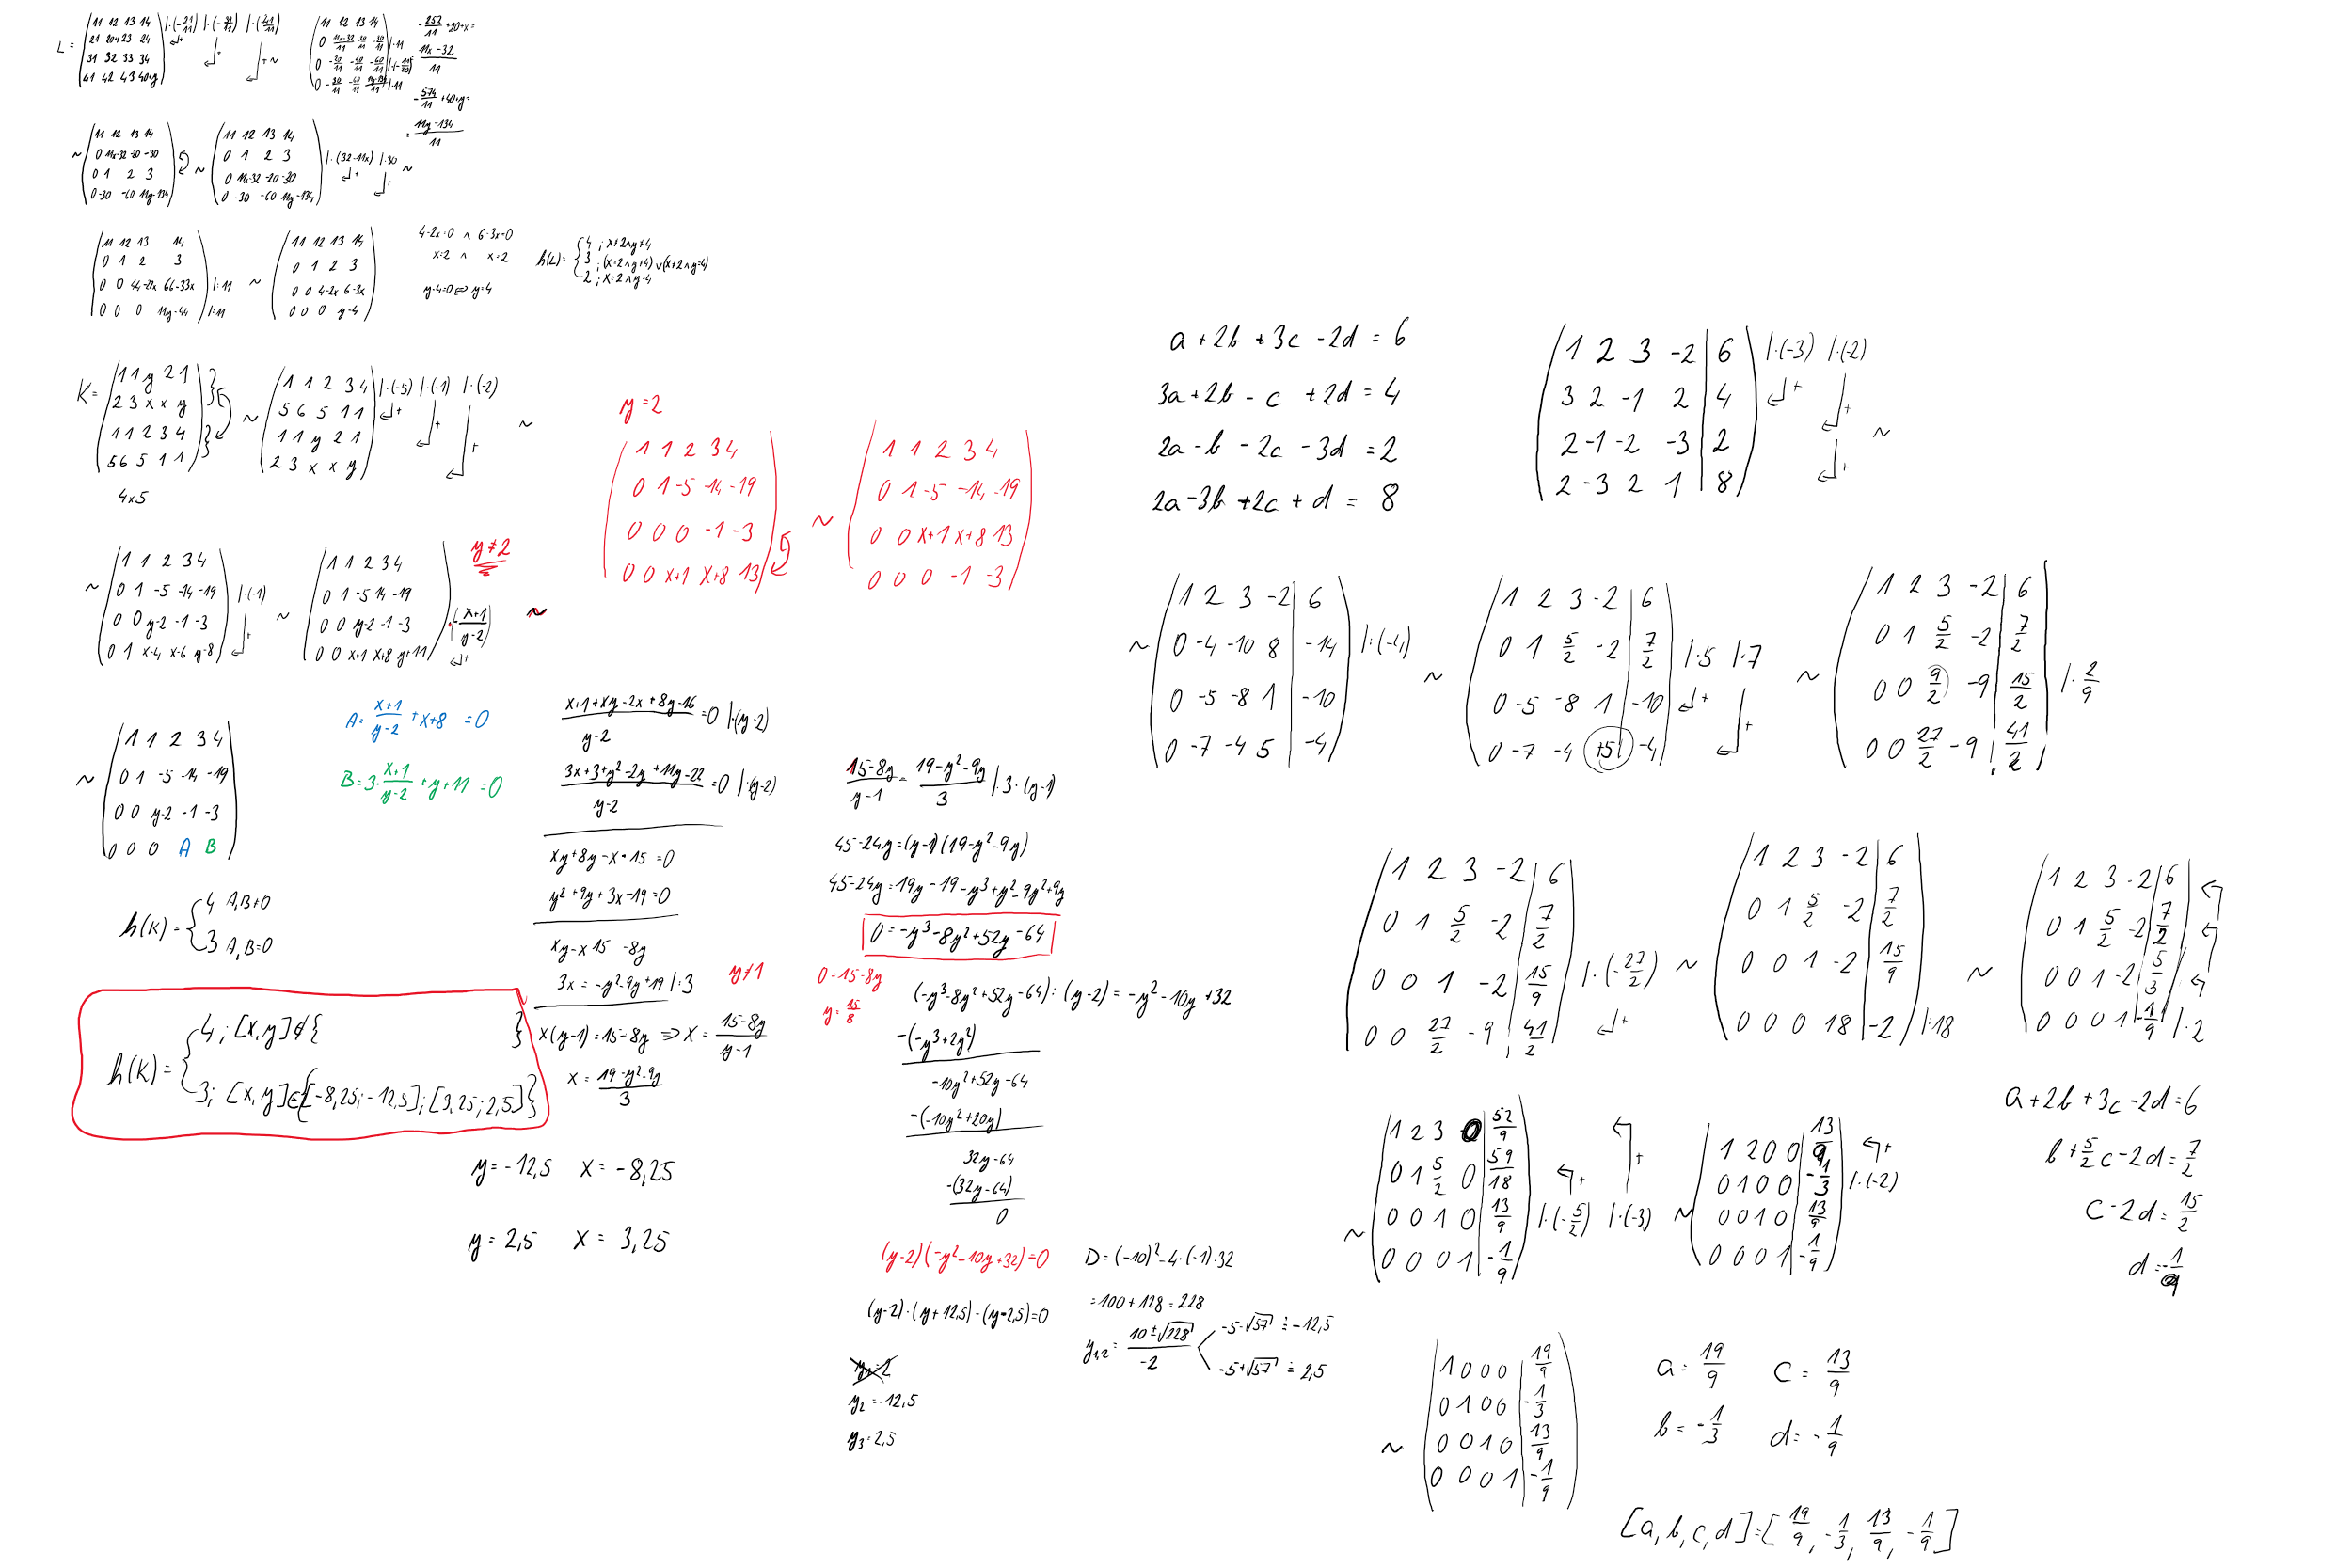 L =
11 12 13 14 |·(-21/11) |·(-31/11) |·(-41/11)
21 20+x 23 24
31 32 33 34
41 42 43 40+y
~
11 12 13 14
0 11x-32/11 -20/11 -30/11 |·11
0 -20/11 -40/11 -60/11
-252/11 +20+x =
11x-32/11
-574/11 +40+y =
= 11y-134/11
~
11 12 13 14
0 11x-32 -20 -30
0 1 2 3
0 -30 -60 11y-134
~
11 12 13 14
0 1 2 3 |·(32-11x) |·30
0 11x-32 -20 -30
0 -30 -60 11y-134
~
11 12 13 14
0 1 2 3
0 0 44-22x 66-33x |:11
0 0 0 11y-44 |:11
~
11 12 13 14
0 1 2 3
0 0 4-2x 6-3x
0 0 0 y-4
4-2x=0 ∧ 6-3x=0
x=2 ∧ x=2
y-4=0 ⇔ y=4
h(L) =
4 ; x≠2∧y≠4
3 ; (x=2∧y≠4)∨(x≠2∧y=4)
2 ; x=2∧y=4
K =
1 1 y 2 1
2 3 x x y
1 1 2 3 4
5 6 5 1 1
4x5
~
1 1 2 3 4 |·(-5) |·(-1) |·(-2)
5 6 5 1 1
1 1 y 2 1
2 3 x x y
~
~
1 1 2 3 4
0 1 -5 -14 -19 |·(-1)
0 0 y-2 -1 -3
0 1 x-4 x-6 y-8
~
1 1 2 3 4
0 1 -5 -14 -19
0 0 y-2 -1 -3 ·(-x+1/y-2)
0 0 x+1 x+8 y+11
y≠2
~
y=2
1 1 2 3 4
0 1 -5 -14 -19
0 0 0 -1 -3
0 0 x+1 x+8 13
~
1 1 2 3 4
0 1 -5 -14 -19
0 0 x+1 x+8 13
0 0 0 -1 -3
~
1 1 2 3 4
0 1 -5 -14 -19
0 0 y-2 -1 -3
0 0 0 A B
A = x+1/y-2 + x+8 = 0
B = 3·x+1/y-2 + y+11 = 0
h(K) =
4 A,B≠0
3 A,B=0
h(K) =
4 ; [x,y]∉{ }
3 ; [x,y]∈{[-8,25;-12,5];[3,25;2,5]}
x+1+xy-2x+8y-16/y-2 = 0 |·(y-2)
3x+3+y²-2y+11y-22/y-2 = 0 |·(y-2)
xy+8y-x-15=0
y²+9y+3x-19=0
xy-x 15 -8y
3x = -y²-9y+19 |:3
y≠1
x(y-1)=15-8y ⇒ x = 15-8y/y-1
x = 19-y²-9y/3
y=-12,5 x=-8,25
y=2,5 x=3,25
15-8y/y-1 = 19-y²-9y/3 |·3·(y-1)
45-24y=(y-1)(19-y²-9y)
45-24y=19y-19-y³+y²-9y²+9y
0=-y³-8y²+52y-64
0=15-8y
y=15/8
(-y³-8y²+52y-64):(y-2)=-y²-10y+32
-(-y³+2y²)
-10y²+52y-64
-(-10y²+20y)
32y-64
-(32y-64)
0
(y-2)(-y²-10y+32)=0
(y-2)·(y+12,5)·(y-2,5)=0
y₂=-12,5
y₃=2,5
D=(-10)²-4·(-1)·32
=100+128=228
y₁,₂ = 10±√228/-2
-5-√57 ≐ -12,5
-5+√57 ≐ 2,5
a+2b+3c-2d=6
3a+2b-c+2d=4
2a-b-2c-3d=2
2a-3b+2c+d=8
1 2 3 -2 | 6 |·(-3) |·(-2)
3 2 -1 2 | 4
2 -1 -2 -3 | 2
2 -3 2 1 | 8
~
~
1 2 3 -2 | 6
0 -4 -10 8 | -14 |:(-4)
0 -5 -8 1 | -10
0 -7 -4 5 | -4
~
1 2 3 -2 | 6
0 1 5/2 -2 | 7/2 |·5 |·7
0 -5 -8 1 | -10
0 -7 -4 +5 | -4
~
1 2 3 -2 | 6
0 1 5/2 -2 | 7/2
0 0 9/2 -9 | 15/2 |·2/9
0 0 27/2 -9 | 41/2
1 2 3 -2 | 6
0 1 5/2 -2 | 7/2
0 0 1 -2 | 15/9 |·(-27/2)
0 0 27/2 -9 | 41/2
~
1 2 3 -2 | 6
0 1 5/2 -2 | 7/2
0 0 1 -2 | 15/9
0 0 0 18 | -2 |:18
~
1 2 3 -2 | 6
0 1 5/2 -2 | 7/2
0 0 1 -2 | 5/3
0 0 0 1 | -1/9 |·2
a+2b+3c-2d=6
b+5/2c-2d=7/2
c-2d=15/2
d=-1/9
~
1 2 3 0 | 52/9
0 1 5/2 0 | 59/18
0 0 1 0 | 13/9 |·(-5/2) |·(-3)
0 0 0 1 | -1/9
~
1 2 0 0 | 13/9
0 1 0 0 | -1/3 |·(-2)
0 0 1 0 | 13/9
0 0 0 1 | -1/9
~
1 0 0 0 | 19/9
0 1 0 0 | -1/3
0 0 1 0 | 13/9
0 0 0 1 | -1/9
a=19/9 c=13/9
b=-1/3 d=-1/9
[a,b,c,d]=[19/9,-1/3,13/9,-1/9]